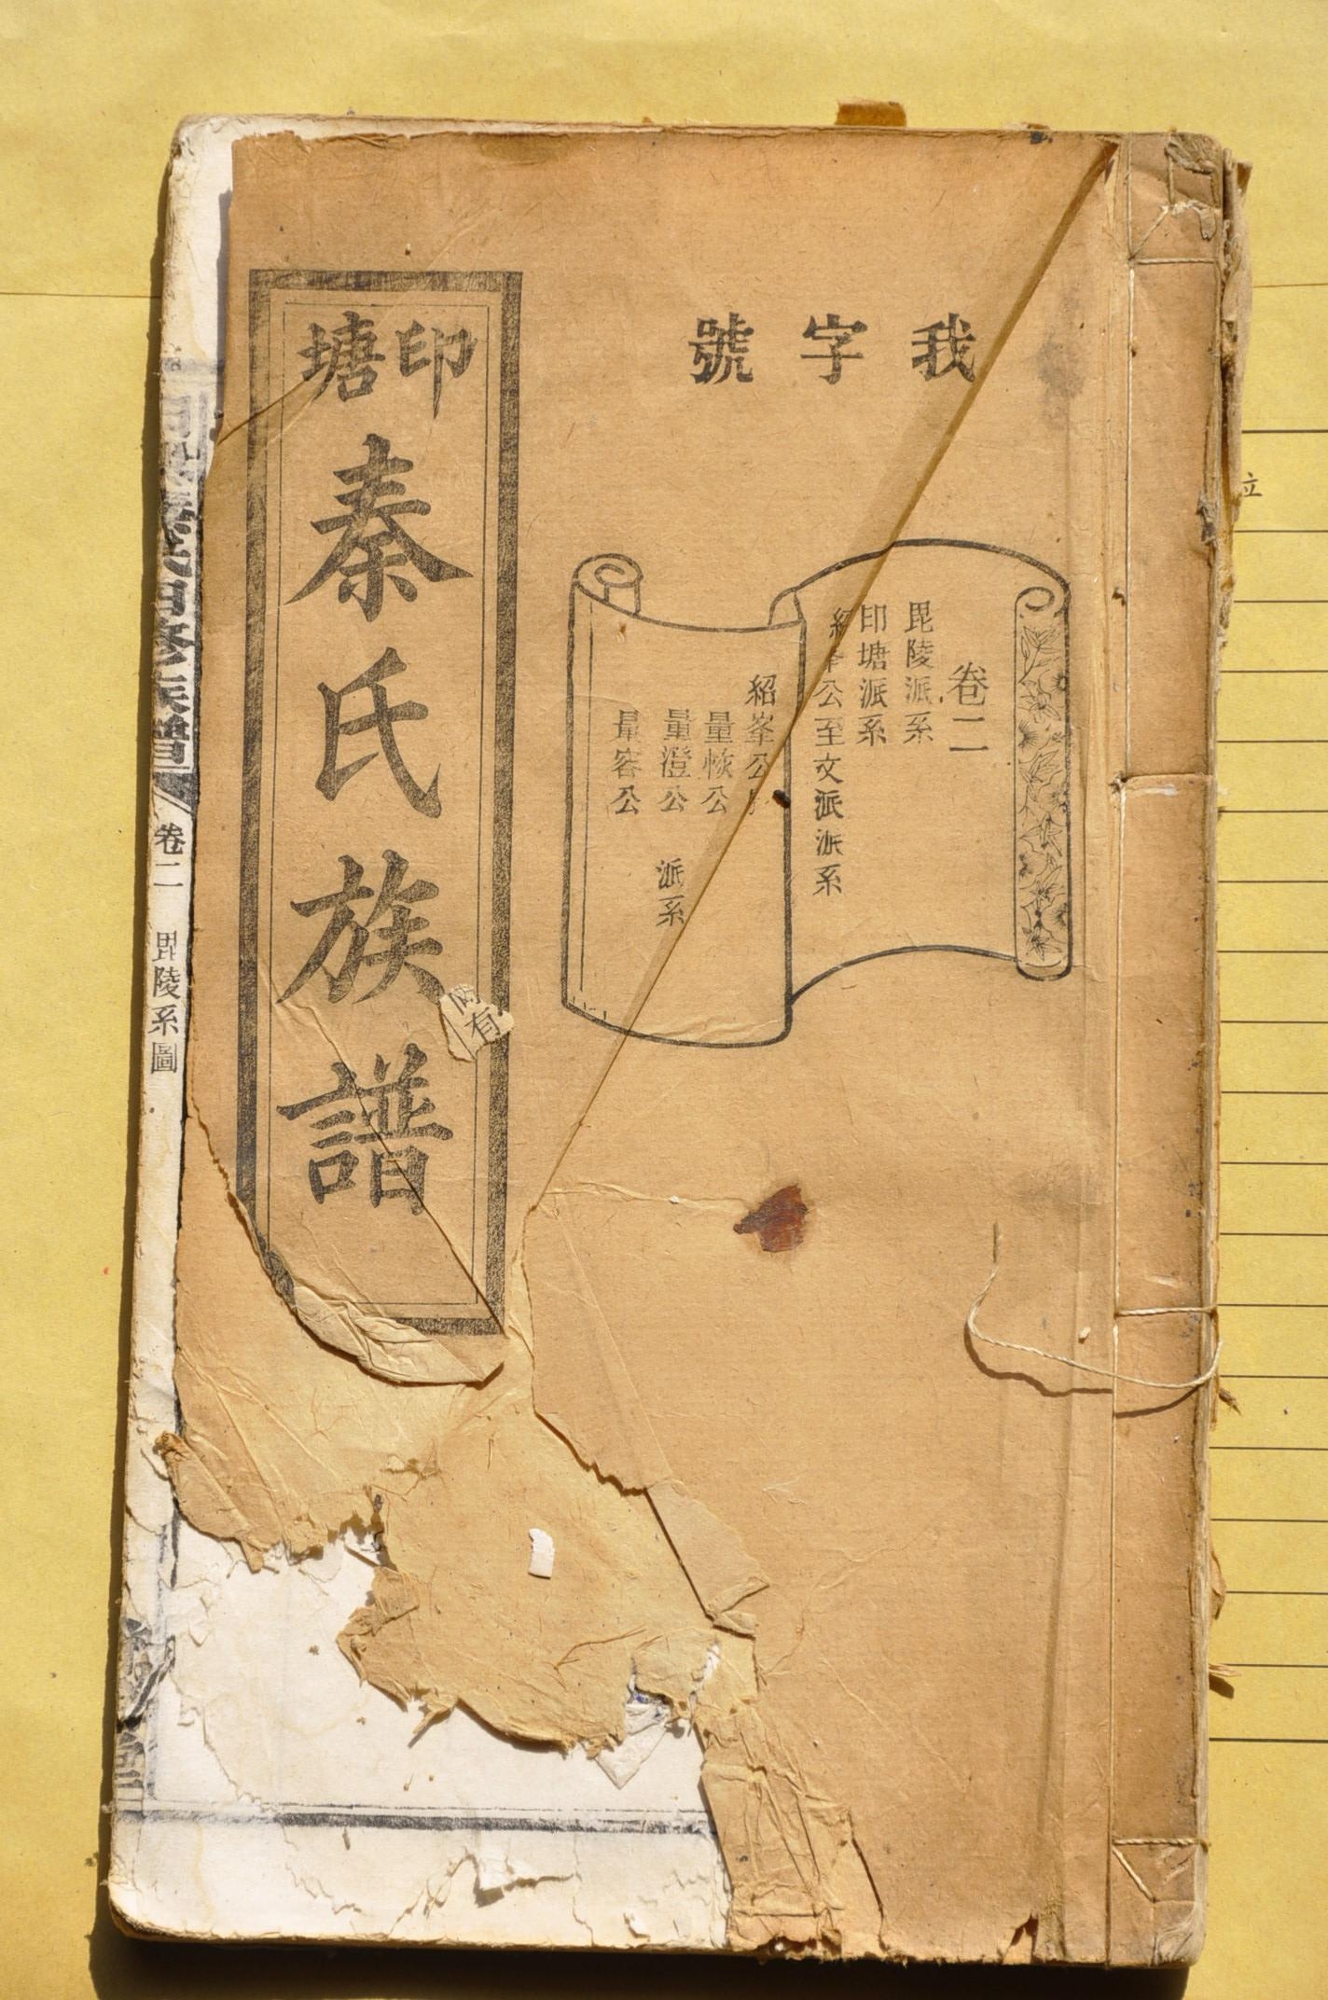 我字號
卷二
毘陵派系
印塘派系
公至文派派系
紹峯公
量恢公
量澄公
量容公
派系
印塘
秦氏族譜
有
秦氏四修族譜
卷二
毘陵系圖
立